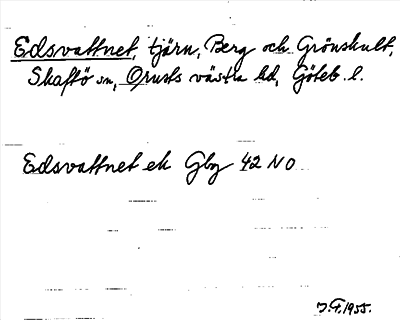 Edsvattnet, tjärn, Berg och Grönskult,
Skaftö sn, Orusts västra hd, Göteb. l.
Edsvattnet ek Gbg 42 NO
J.F. 1955.